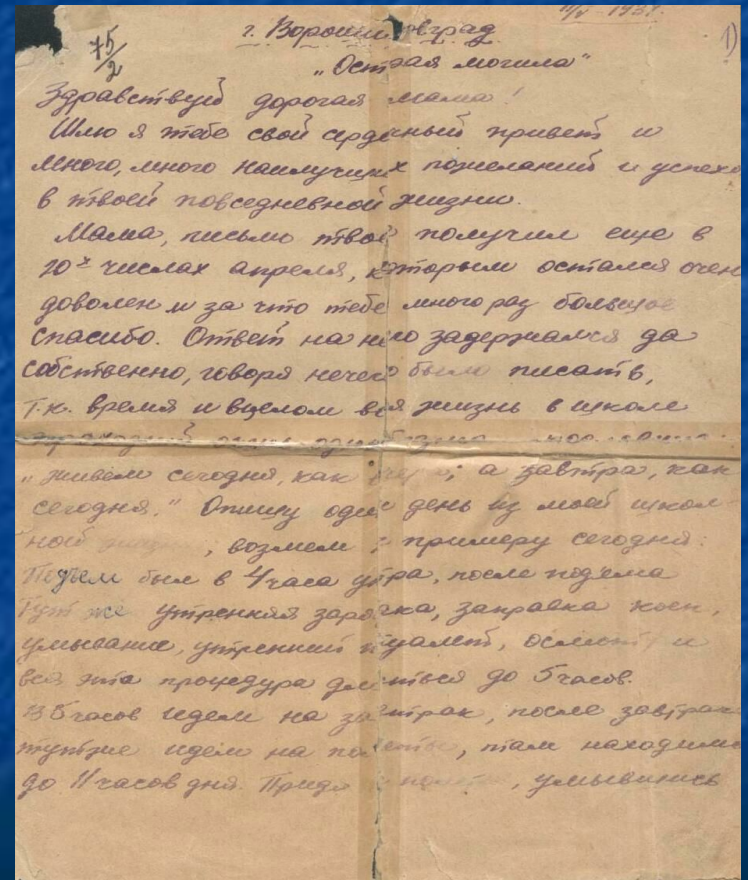 75
2
г. Ворошиловград
1)
„Острая могила“
Здравствуй дорогая мама!
Шлю я тебе свой сердечный привет и
много, много наилучших пожеланий и успехо
в твоей повседневной жизни.
Мама, письмо твоё получил еще в
числах апреля, которым остался очен
доволен и за что тебе много раз большое
спасибо. Ответ на него задержался да
собственно, говоря нечего было писать,
т.к. время и вцелом вся жизнь в школе
„живем сегодня, как вчера, а завтра, как
сегодня.“ Опишу один день из моей школ-
ной жизни, возмем к примеру сегодня:
Подъем был в 4 часа утра, после подема
тут же утренняя зарядка, заправка коек,
умывание, утренний туалет, осмотр и
вся эта процедура длиться до 5 часов.
В 5 часов идем на завтрак, после завтрак
тутже идем на полеты, там находимс
до 11 часов дня. Придя с полетов, умывшись